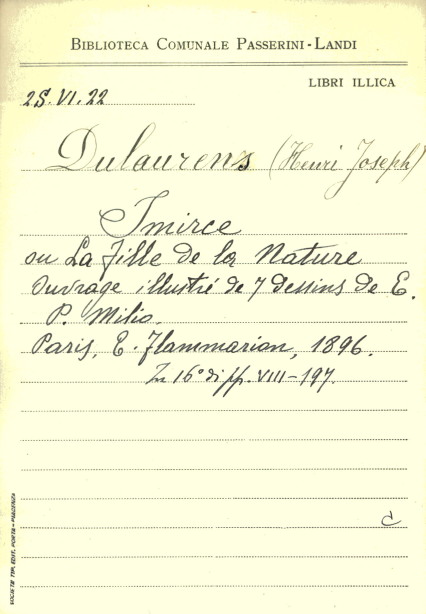 BIBLIOTECA COMUNALE PASSERINI-LANDI
LIBRI ILLICA
2S.VI.22
Dulaurens (Henri Joseph)
Imirce
ou La fille de la Nature
Ouvrage illustré de 7 dessins de E.
P. Milio.
Paris, E. Flammarion, 1896.
In 16° di pp. VIII-197.
d
SOCIETÀ TIP. EDIT. PORTA-PIACENZA